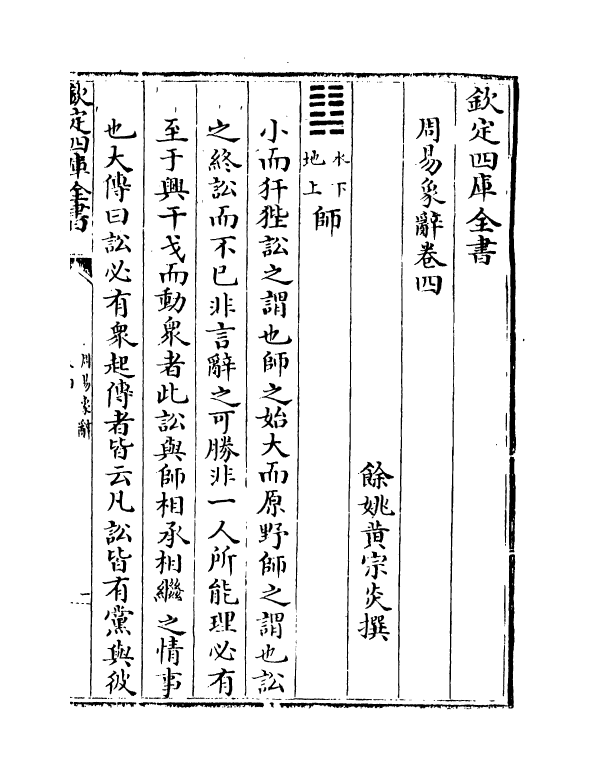 欽定四庫全書
周易象辭卷四
餘姚黄宗炎撰
䷆水下地上師
小而犴狴訟之謂也師之始大而原野師之謂也訟
之終訟而不已非言辭之可勝非一人所能理必有
至于興干戈而動衆者此訟與師相承相繼之情事
也大傳曰訟必有衆起傳者皆云凡訟皆有黨與彼
欽定四庫全書
周易象辭
一